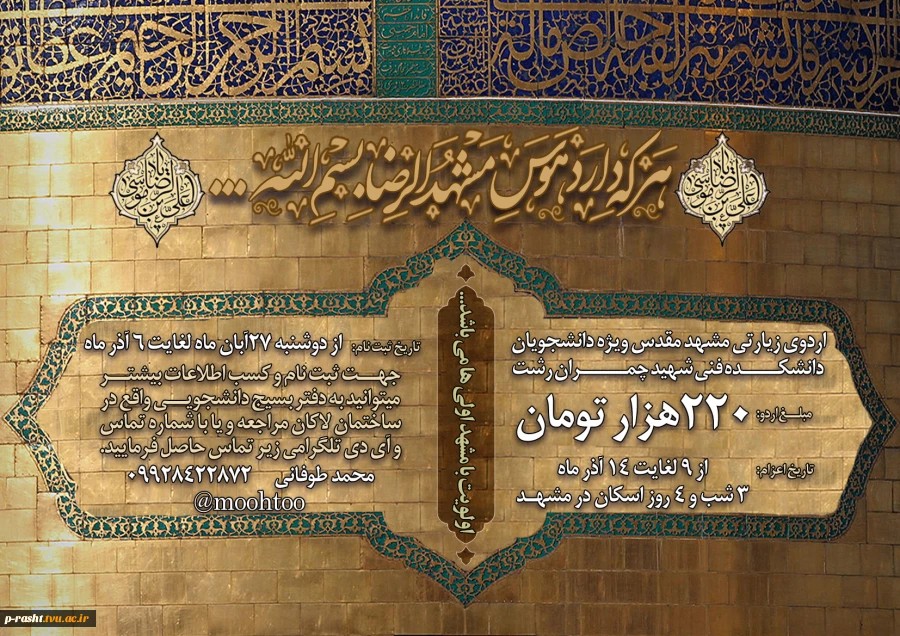 بسم الله الرحمن الرحیم
هر که دارد هوس مشهد الرضا بسم الله ...
اردوی زیارتی مشهد مقدس ویژه دانشجویان
دانشکده فنی شهید چمران رشت
مبلغ اردو: ۲۲۰هزار تومان
تاریخ اعزام: از ۹ لغایت ۱۴ آذر ماه
۳ شب و ۴ روز اسکان در مشهد
اولویت با مشهد اولی ها می باشد...
تاریخ ثبت نام: از دوشنبه ۲۷آبان ماه لغایت ۶ آذر ماه
جهت ثبت نام و کسب اطلاعات بیشتر
میتوانید به دفتر بسیج دانشجویی واقع در
ساختمان لاکان مراجعه و یا با شماره تماس
و آی دی تلگرامی زیر تماس حاصل فرمایید.
محمد طوفانی ۰۹۹۲۸۴۲۲۸۷۲
@moohtoo
p-rasht.tvu.ac.ir